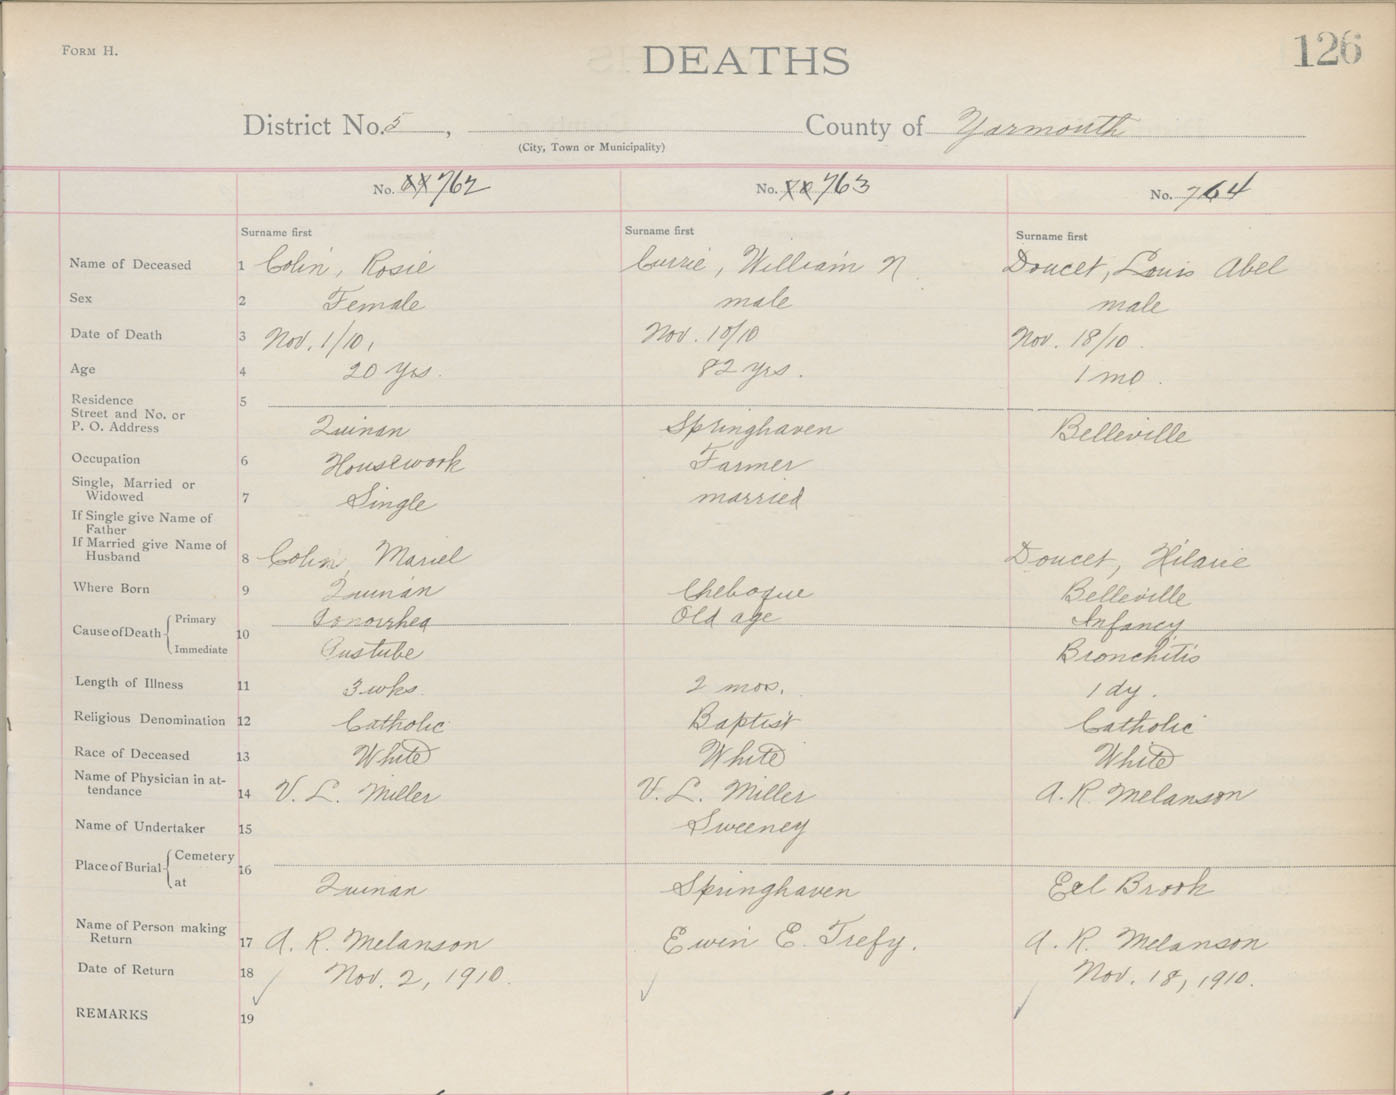 FORM H.
DEATHS
126
District No. 5, County of Yarmouth
(City, Town or Municipality)
No. 762 No. 763 No. 764
Surname first Surname first Surname first
Name of Deceased 1 Colin, Rosie Currie, William N Doucet, Louis Abel
Sex 2 Female male male
Date of Death 3 Nov. 1/10, Nov. 10/10 Nov. 18/10.
Age 4 20 yrs. 82 yrs. 1 mo.
Residence 5
Street and No. or
P. O. Address Quinan Springhaven Belleville
Occupation 6 Housework Farmer
Single, Married or
Widowed 7 Single married
If Single give Name of
Father
If Married give Name of
Husband 8 Colin, Mariel Doucet, Hilaire
Where Born 9 Quinan Chebogue Belleville
Cause of Death Primary 10 Old age Infancy
Immediate Bronchitis
Length of Illness 11 3 wks. 2 mos. 1 dy.
Religious Denomination 12 Catholic Baptist Catholic
Race of Deceased 13 White White White
Name of Physician in at-
tendance 14 V. L. Miller V. L. Miller A. R. Melanson
Name of Undertaker 15 Sweeney
Place of Burial Cemetery 16
at Quinan Springhaven Eel Brook
Name of Person making
Return 17 A. R. Melanson Ewin E. Trefy. A. R. Melanson
Date of Return 18 Nov. 2, 1910. Nov. 18, 1910.
REMARKS 19